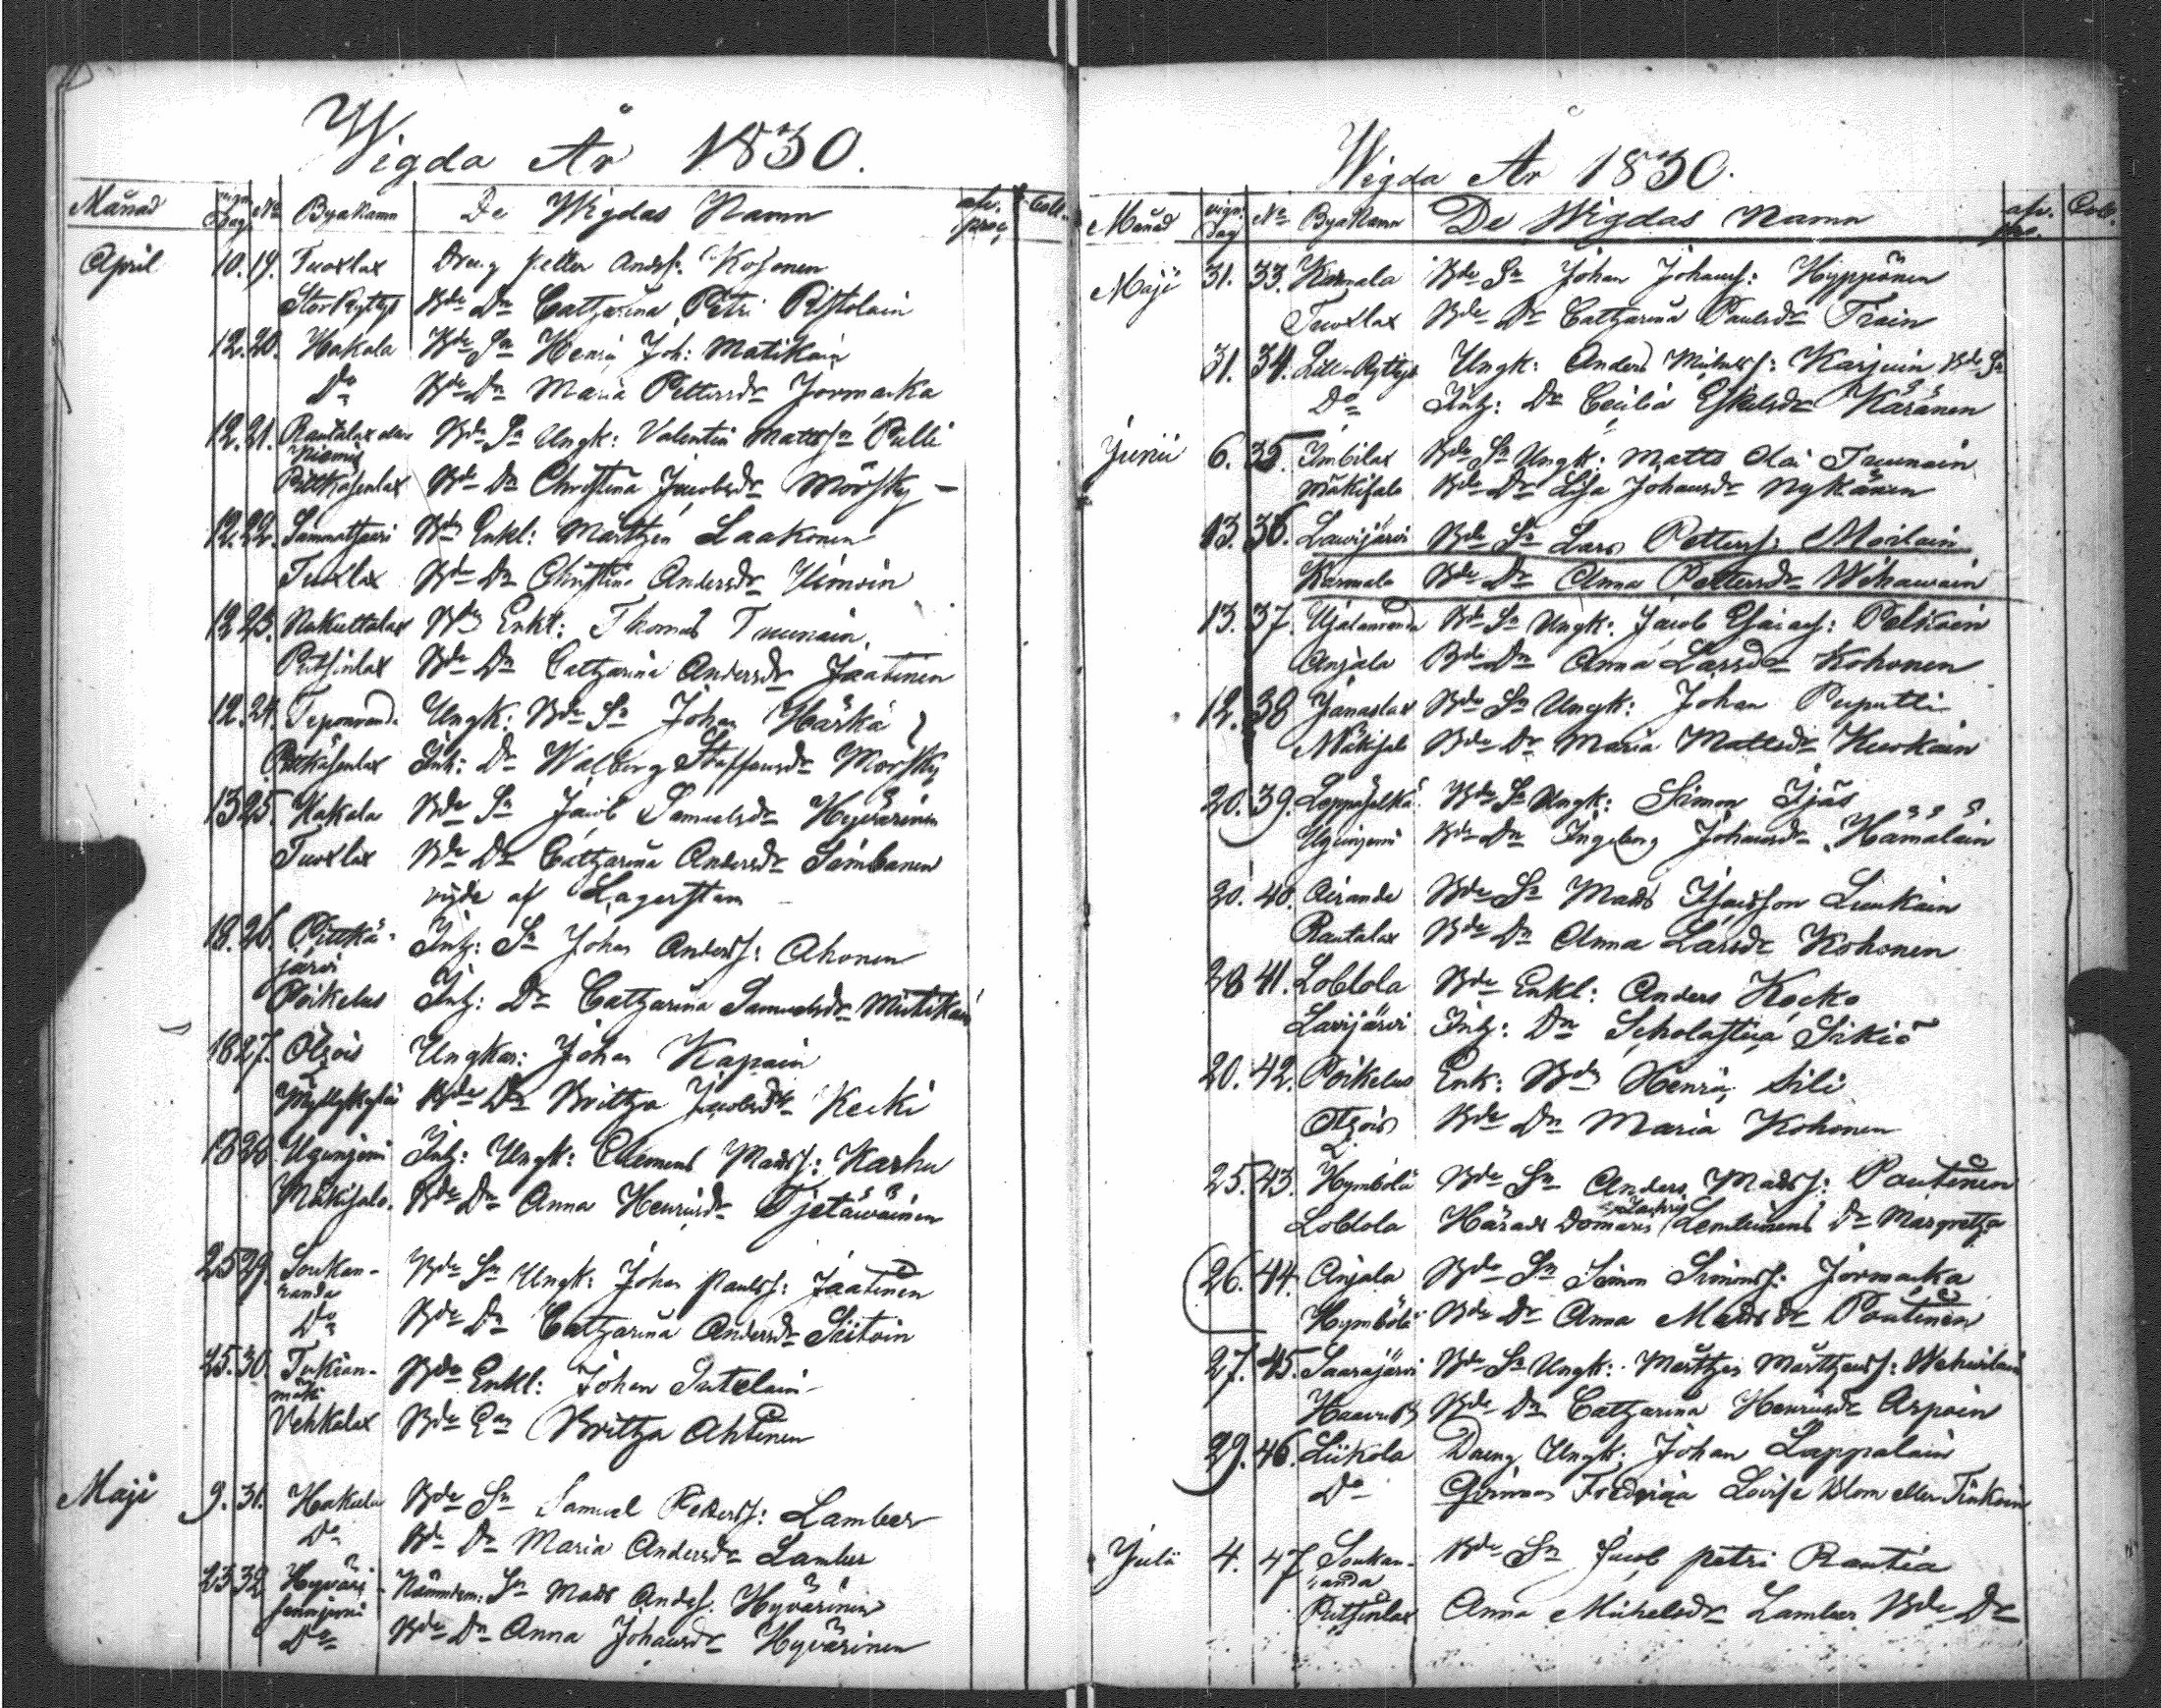 Wigda År 1830.
Månad vign. Dag No ByaNamn De Wigdas Namn afv. Coll.
April 10. 19. Tuoxlax Dreng Petter Andsf: Kosonen
StorRyttys Bde Dr Catharina Petri Ristolain
12. 20. Hakala Bde Sn Henric Joh: Matikain
Do Bde Dr Maria Pettersdr Jormacka
12. 21. Rautalax Bde Sn Ungk: Valentin Mattssn Pulli
Pitkäsenlax Bde Dr Christina Jacobsdr Mörsky
12. 22. Bde Enkl: Mårthen Laakonen
Tuoxlax Bde Dr Christina Andersdr Himoin
12. 23. Nukuttalax Bde Enkl: Thomas Tuunain
Putsinlax Bde Dr Catharina Andersdr Jaatinen
12. 24. Teponranda Ungk: Bde Sn Johan Härkä
Pitkäsenlax Inh: Dr Walborg Staffansdr Mörsky
13 25. Hakala Bde Sn Jacob Samuelsdr Hyvärinen
Tuoxlax Bde Dr Catharina Andersdr Simbanen
vigde af Lagerstam
18. 26. Pitkä-
järvi Inh: Sn Johan Andersf: Ahonen
Poikelus Inh: Dr Catharina Samuelsdr Mutikain
18 27. Otsois Ungkar: Johan Kapain
Myllykylä Bde Dr Brittha Jacobsdr Kecki
18 28 Ugunjemi Inh: Ungk: Clemens Madsf: Karhu
Mäkisalo. Bde Dr Anna Henricsdr Tjetäwäinen
25 29. Soukan-
randa Bde Sn Ungk: Johan Paulsf: Jaatinen
Do Bde Dr Catharina Andersdr Siitoin
25. 30. Tukian-
mäki Bde Enkl: Johan Sutelain
Vehkalax Bde Ea Brittha Ahtinen
Maji 9. 31. Hakala Bde Sn Samuel Pettersf: Lamber
Do Bde Dr Maria Andersdr Lamber
23 32 Hyväri- Nämndem: Sn Mads Andsf: Hyvärinen
senjemi
Do Bde Dr Anna Johansdr Hyvärinen
Wigda År 1830.
Månad vign. Dag No ByaNamn De Wigdas Namn afv. Coll.
Maji 31. 33. Karmala Bde Sn Johan Johansf: Hyppönen
Tuoxlax Bde Dr Catharina Paulsdr Train
31. 34. Lill-Rytty Ungk: Anders Michelsf: Karjuin Bde Sn
Do Inh: Dr Cecilia Eskelsdr Käränen
Junii 6. 35. Imbilax Bde Sn Ungk: Matts Olai Tuunain
Mäkisalo Bde Dr Lisa Johansdr Nykänen
13. 36. Lavijärvi Bde Sn Lars Pettersf: Moilain
Karmala Bde Dr Anna Pettersdr Wihawain
13. 37. Ujalanranda Bde Sn Ungk: Jacob Esaiasf: Pelkoin
Anjala Bde Dr Anna Larsdr Kohonen
12. 38 Janaslax Bde Sn Ungk: Johan Puputti
Mäkisalo Bde Dr Maria Mattsdr Kuokain
20. 39. Leppäselkä Bde Sn Ungk: Simon Ijäs
Ugunjemi Bde Dr Ingeborg Johansdr Hämäläin
20. 40. Oiranda Bde Sn Mads Isacsson Liukain
Rautalax Bde Dr Anna Larsdr Kohonen
28 41. Loblola Bde Enkl: Anders Kocko
Lavijärvi Inh: Dr Scholastica Sirkiö
20. 42. Poikelus Enk: Bde Henric Sili
Otsois Bde Dr Maria Kohonen
25. 43. Hymbölä Bde Sn Anders Madsf: Poutinen
Loblola Härads Domaris Lemteinens Dr Margretha
26. 44. Anjala Bde Sn Simon Simonsf: Jormacka
Hymbölä Bde Dr Anna Madsdr Poutinen
27. 45. Saarajärvi Bde Sn Ungk: Mårthen Mårthensf:
Bde Dr Catharina Henricsdr Arpoin
29. 46. Liikola Dreng Ungk: Johan Lappalain
Do Qvinnan Fredrica Lovisa Blom eller Tiukain
Julii 4. 47 Soukan-
randa Bde Sn Jacob Petri Rautia
Putsinlax Anna Michelsdr Lamber Bde Dr